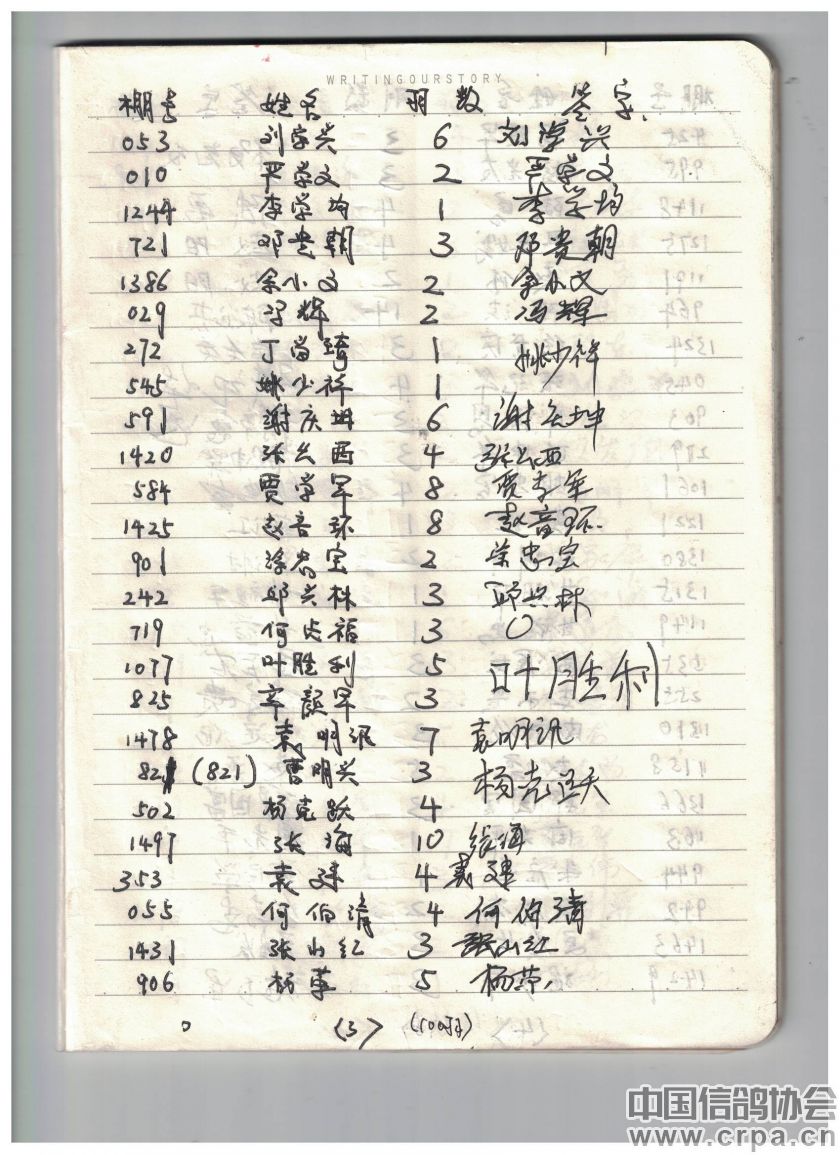 WRITINGOURSTORY
棚号 姓名 羽数 签字
053 刘学兴 6 刘学兴
010 严学文 2 严学文
1244 李学均 1 李学均
721 邓贵朝 3 邓贵朝
1386 余小文 2 余小文
029 冯辉 2 冯辉
272 丁尚琦 1 姚少祥
545 姚少祥 1
591 谢庆坤 6 谢庆坤
1420 张兴西 4 张兴西
584 贾学军 8 贾学军
1425 赵音环 8 赵音环
901 宝 2 忠宝
242 邱兴林 3 邱兴林
719 何贞福 3
1077 叶胜利 5 叶胜利
825 军 3
1478 袁明 7 袁明
82 (821) 曹明兴 3 杨克跃
502 杨克跃 4
1497 张海 10 张海
353 袁建 4 袁建
055 何伯清 4 何伯清
1431 张山红 3 张山红
906 杨革 5 杨革
(3) (100羽)
中国信鸽协会
www.crpa.cn